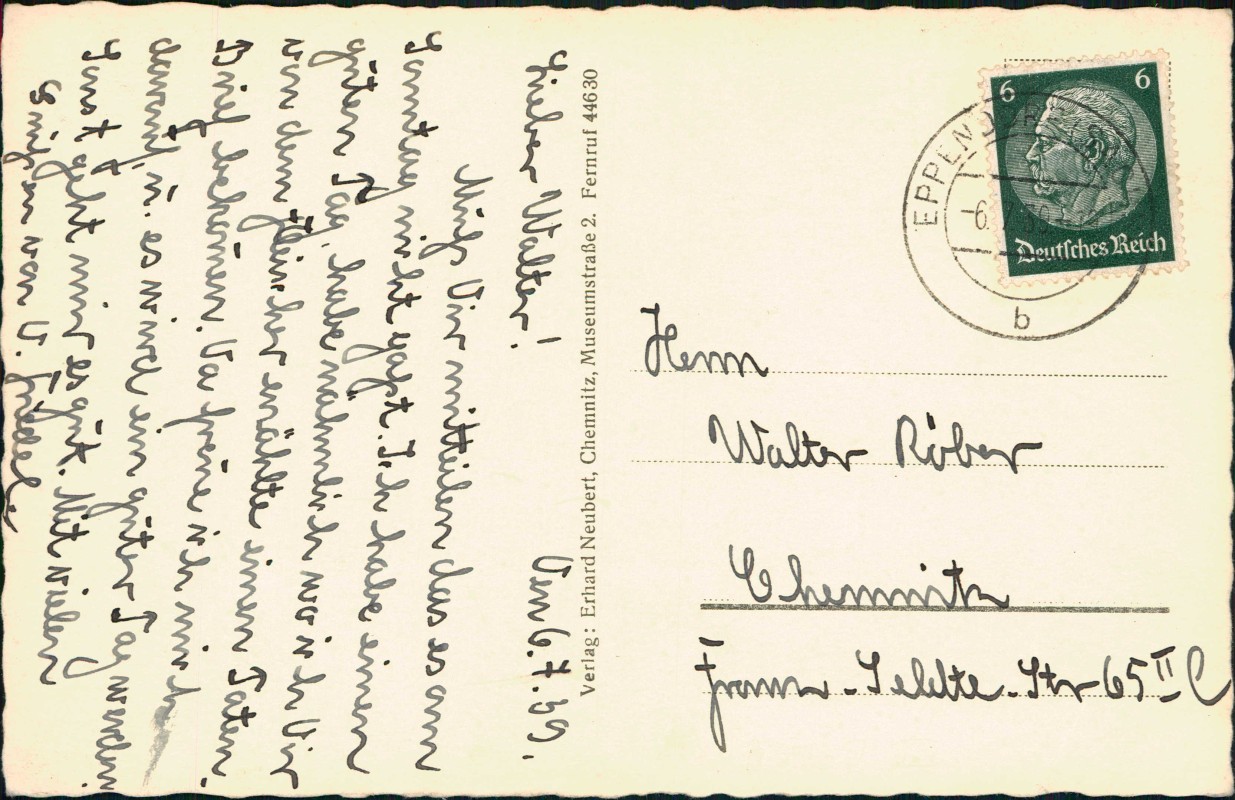 Lieber Walter! Den 6.7.39.
Muß Dir mitteilen das es am
Sonntag nicht geht. Ich habe einen
guten Tag, habe nähmlich wo ich Dir
von dem erzählte einen Daten
Brief bekommen. Da freue ich mich
darauf, u. es wird ein guter Tag werden.
Sonst geht mir es gut. Mit vielen
Grüßen von D. Friedel.
Verlag: Erhard Neubert, Chemnitz, Museumstraße 2. Fernruf 44630
6 6
Deutsches Reich
EPPENDORF
b
Herrn
Walter Röber
Chemnitz
Franz-Seldte-Str 65 II